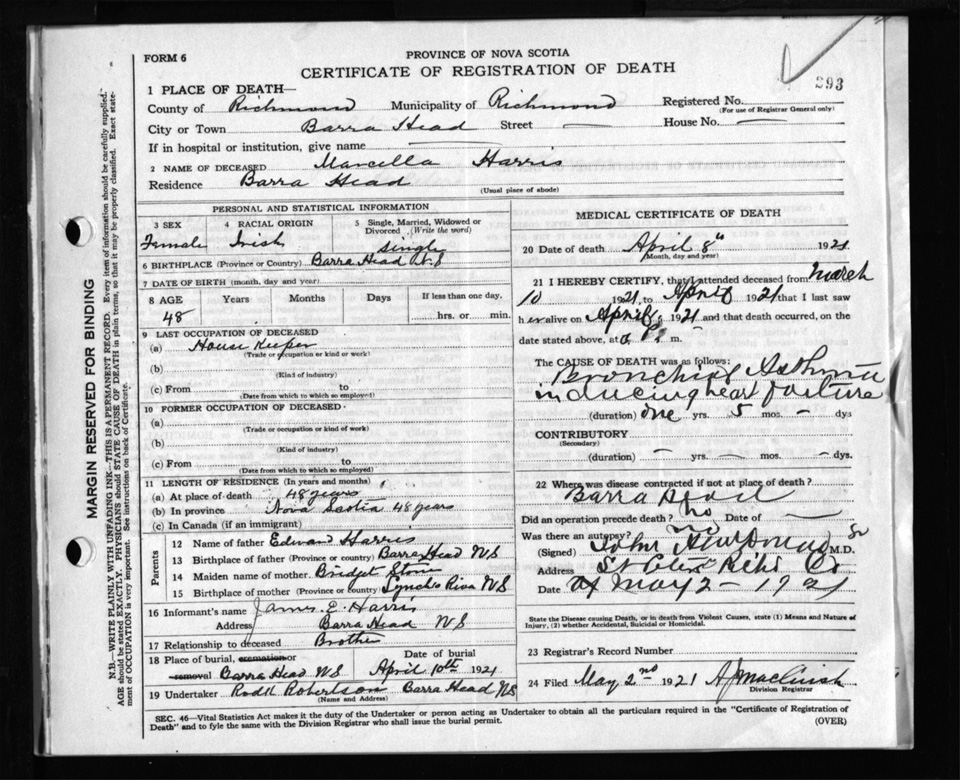 FORM 6
PROVINCE OF NOVA SCOTIA
CERTIFICATE OF REGISTRATION OF DEATH
293
1 PLACE OF DEATH—
County of Richmond Municipality of Richmond Registered No.
(For use of Registrar General only)
City or Town Barra Head Street — House No. —
If in hospital or institution, give name —
2 NAME OF DECEASED Marcella Harris
Residence Barra Head
(Usual place of abode)
PERSONAL AND STATISTICAL INFORMATION
3 SEX 4 RACIAL ORIGIN 5 Single, Married, Widowed or Divorced (Write the word)
Female Irish single
6 BIRTHPLACE (Province or Country) Barra Head N.S
7 DATE OF BIRTH (month, day and year)
8 AGE Years Months Days If less than one day
48 hrs. or min.
9 LAST OCCUPATION OF DECEASED
(a) House Keeper
(Trade or occupation or kind or work)
(b)
(Kind of industry)
(c) From to
(Date from which to which so employed)
10 FORMER OCCUPATION OF DECEASED
(a)
(Trade or occupation or kind of work)
(b)
(Kind of industry)
(c) From to
(Date from which to which so employed)
11 LENGTH OF RESIDENCE (In years and months)
(a) At place of death 48 years
(b) In province Nova Scotia 48 years
(c) In Canada (if an immigrant)
Parents
12 Name of father Edward Harris
13 Birthplace of father (Province or country) Barra Head NS
14 Maiden name of mother Bridget Stone
15 Birthplace of mother (Province or country) Lynch's River NS
16 Informant's name James E. Harris
Address Barra Head NS
17 Relationship to deceased Brother
18 Place of burial, cremation or removal Barra Head NS Date of burial April 10th 1921
19 Undertaker Rodk Robertson Barra Head NS
(Name and Address)
MEDICAL CERTIFICATE OF DEATH
20 Date of death April 8" 1921
(Month, day and year)
21 I HEREBY CERTIFY, that I attended deceased from March
10 1921 to April 8 1921 that I last saw
her alive on April 1921 and that death occurred, on the
date stated above, at m.
The CAUSE OF DEATH was as follows:
Bronchial Asthma
inducing heart failure
(duration) one yrs. 5 mos. — dys
CONTRIBUTORY
(Secondary)
(duration) — yrs. — mos. — dys.
22 Where was disease contracted if not at place of death?
Barra Head
Did an operation precede death? no Date of —
Was there an autopsy? no
(Signed) John M.D.
Address St Peters Rich Co
Date May 2 - 1921
State the Disease causing Death, or in death from Violent Causes, state (1) Means and Nature of Injury, (2) whether Accidental, Suicidal or Homicidal.
23 Registrar's Record Number
24 Filed May 2nd 1921 A J MacCuish
Division Registrar
SEC. 46—Vital Statistics Act makes it the duty of the Undertaker or person acting as Undertaker to obtain all the particulars required in the "Certificate of Registration of
Death" and to fyle the same with the Division Registrar who shall issue the burial permit.
(OVER)
MARGIN RESERVED FOR BINDING
N.B.—WRITE PLAINLY WITH UNFADING INK—THIS IS A PERMANENT RECORD. Every item of information should be carefully supplied.
AGE should be stated EXACTLY. PHYSICIANS should STATE CAUSE OF DEATH in plain terms, so that it may be properly classified. Exact statement
of OCCUPATION is very important. See instructions on back of Certificate.